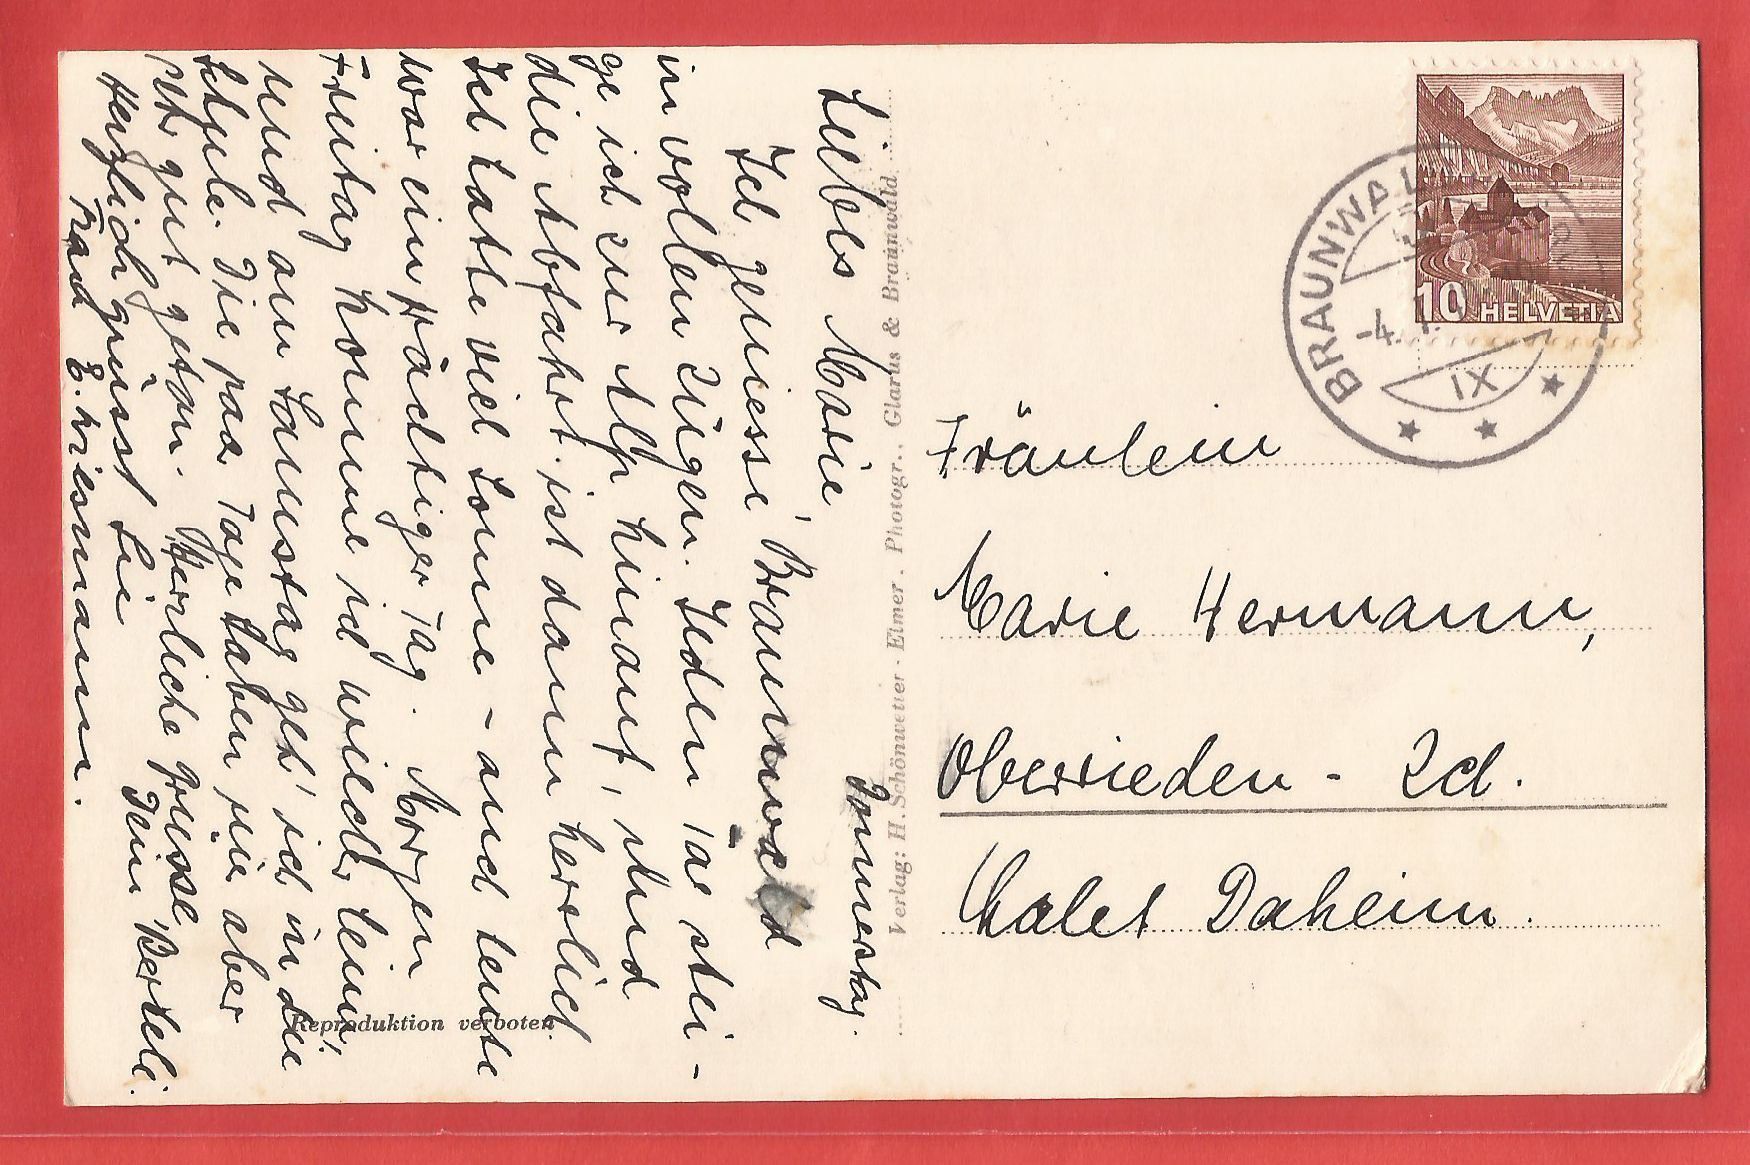 Donnerstag.
Liebes Marie,
Ich geniesse, Braunwald
in vollen Zügen. Jeden Tag stei-
ge ich zur Alp hinauf, und
die Abfahrt ist dann herrlich.
Ich hatte viel Sonne - auch heute
war ein prächtiger Tag. Morgen
Freitag komme ich wieder heim,
und am Samstag geh' ich in die
Schule. Die paar Tage haben mir aber
sehr gut getan. Herrliche Grüsse
Dein Berteli.
Herzlich grüsst Sie
Frau E. Wiesmann.
Reproduktion verboten
Verlag: H. Schönwetter - Elmer . Photogr., Glarus & Braunwald
BRAUNWALD
-4.
IX
10 HELVETIA
Fräulein
Marie Hermann,
Oberrieden - Zch.
Chalet Daheim.